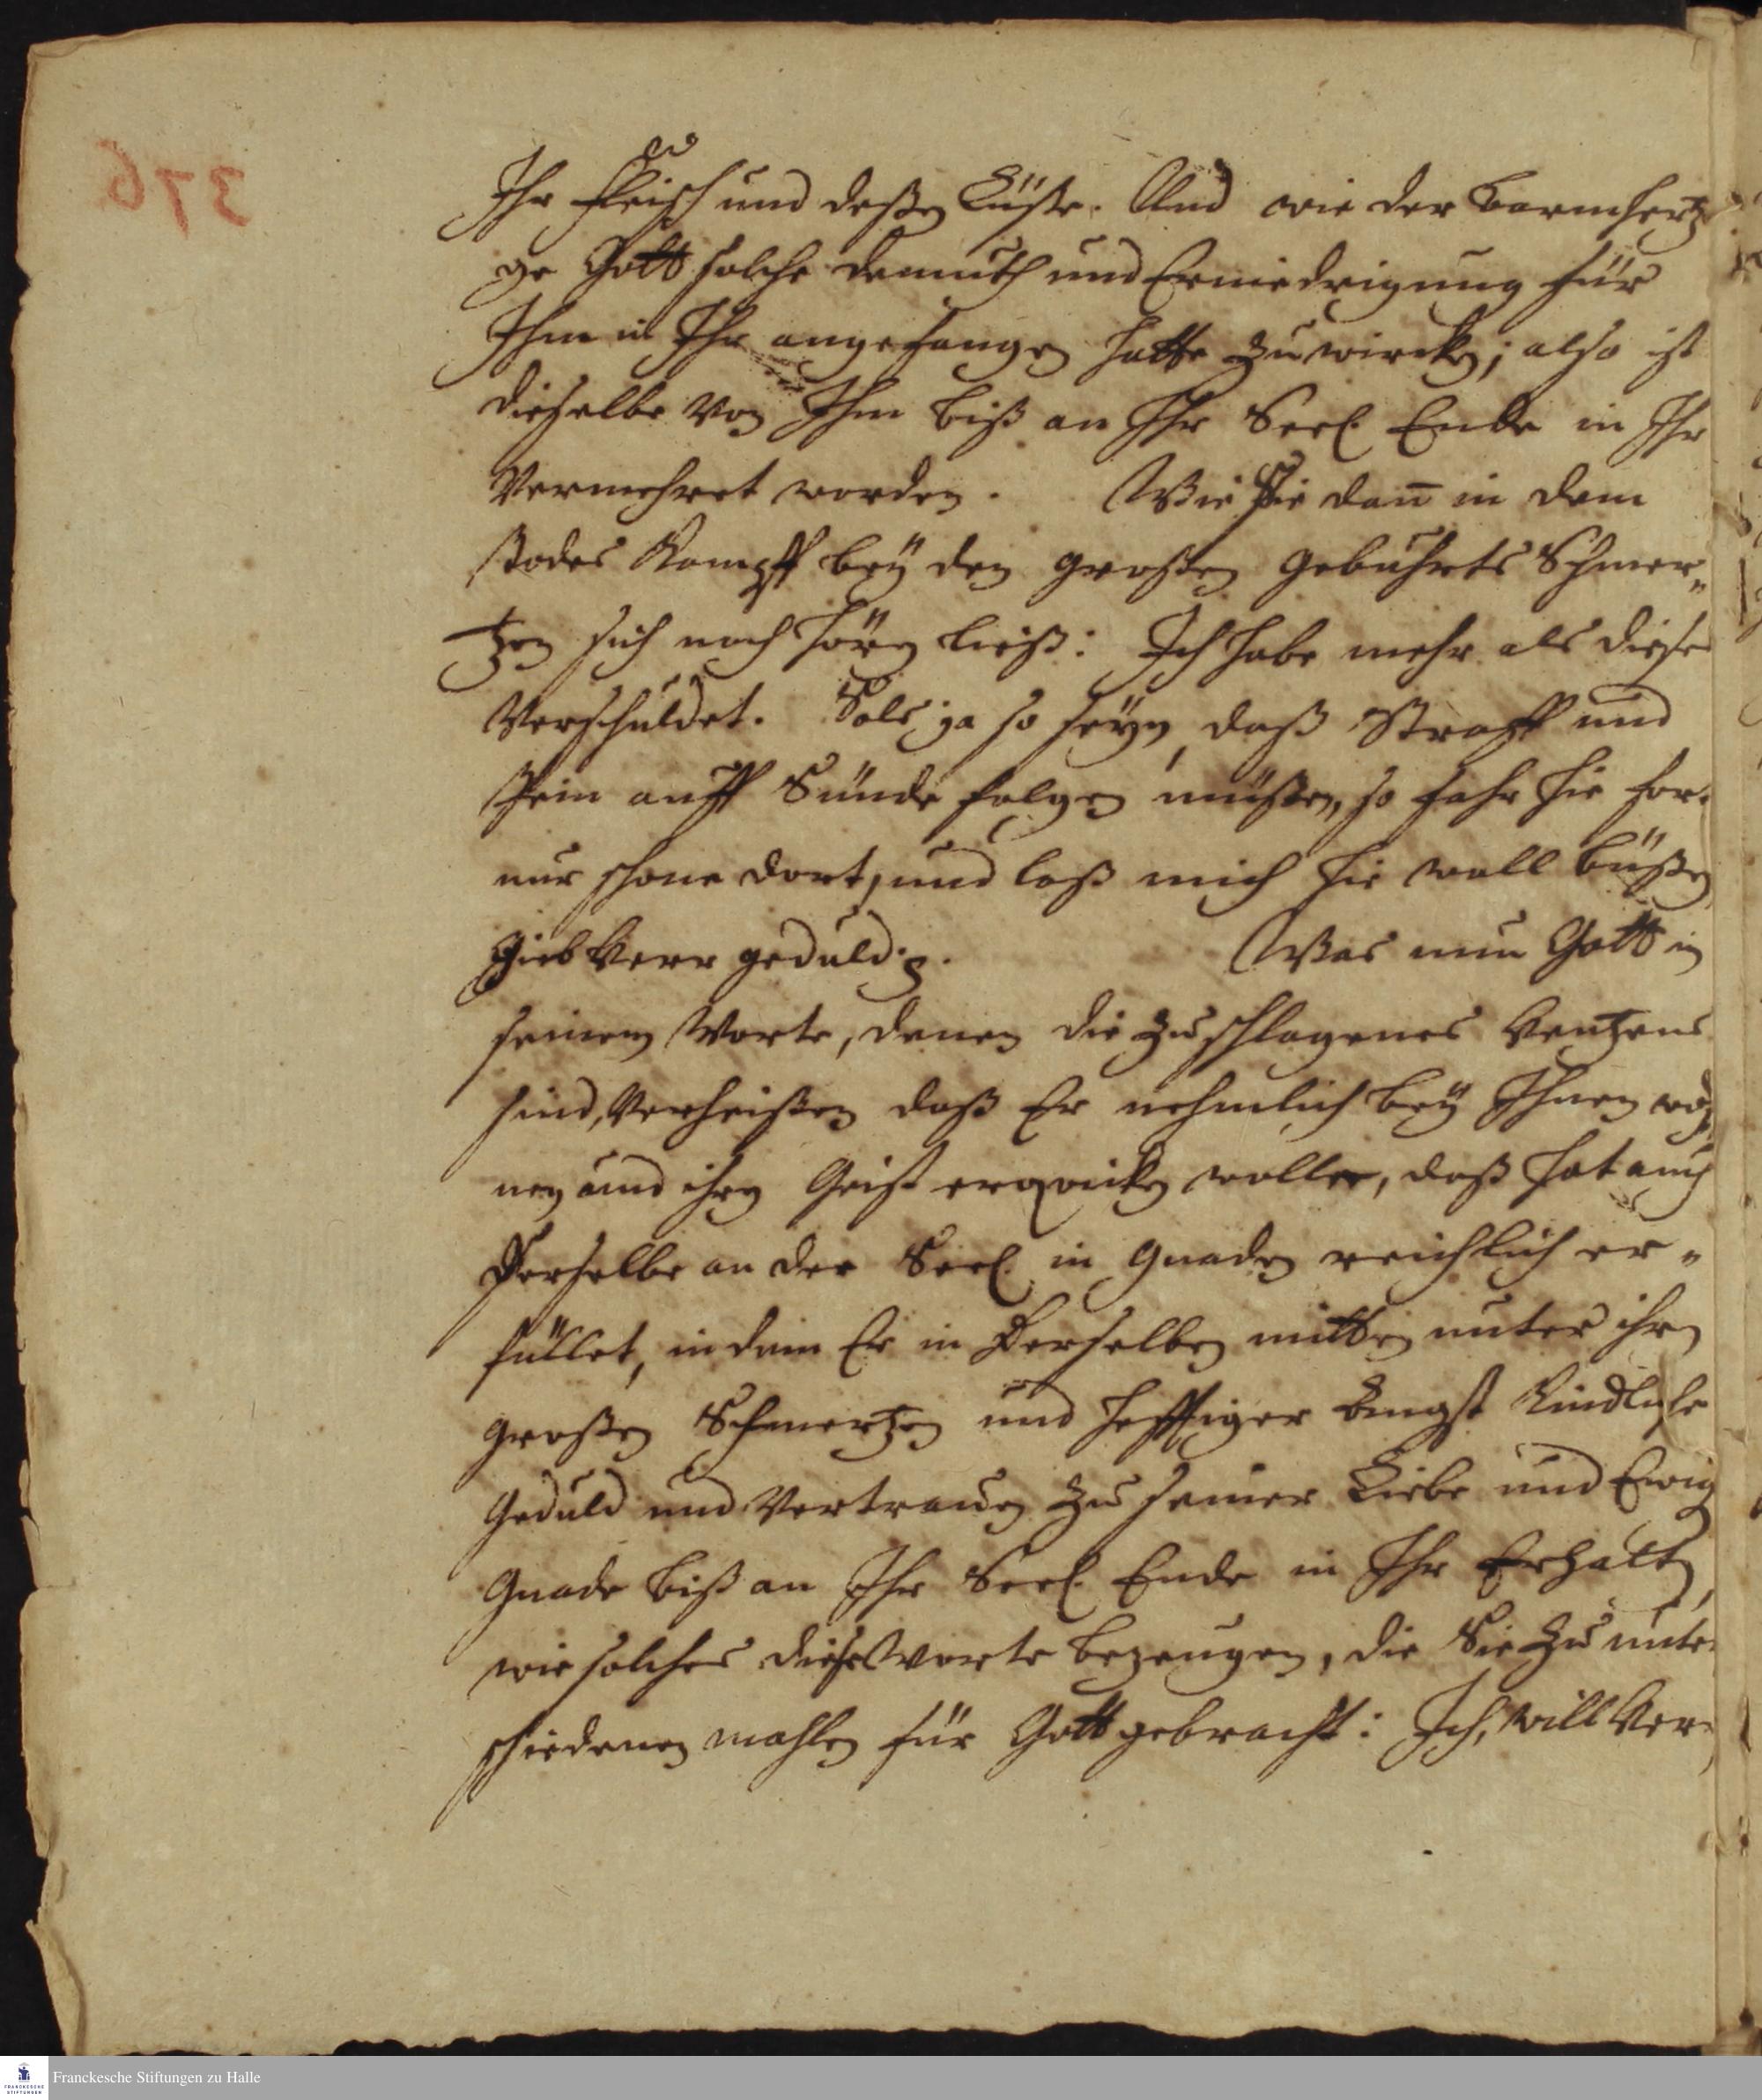 376
Ihr Fleisch und deßen Lüste. Und wie der barmhertzi
ge Gott solche demuth und Erniedrigung für
Ihm in Ihr angefangen hatte zu wircken; also ist
dieselbe von Ihm biß an Ihr Seel. Ende in Ihr
Vermehret worden. Wie Sie dañ in dem
Todes Kampff beÿ den großen gebuhrts Schmer„
tzen sich noch hören ließ: Ich habe mehr als diese
Verschuldet. Sols ja so seÿn, daß Straff und
Pein auff Sünde folgen müßen, so fahr hie fort
nur schone dort, und laß mich hie woll büßen
Gieb Herr geduld.
Was nun Gott in
seinem Worte, denen die zuschlagenes Hertzens
sind, Verheißen daß Er nehmlich beÿ Ihnen woh
nen und ihren Geist erqvicken wolle, daß hat auch
Derselbe an der Seel. in Gnaden reichlich er„
füllet, in dem Er in Derselben mitten unter ihren
großen Schmertzen und hefftiger Angst Kindliche
Geduld und Vertrauen zu seiner Liebe und Ewig
Gnade biß an Ihr Seel. Ende in Ihr Erhalten,
wie solches diese Worte bezeugen, die Sie zu unter
schiedenen mahlen für Gott gebracht: Ich, will Ver„
Franckesche Stiftungen zu Halle